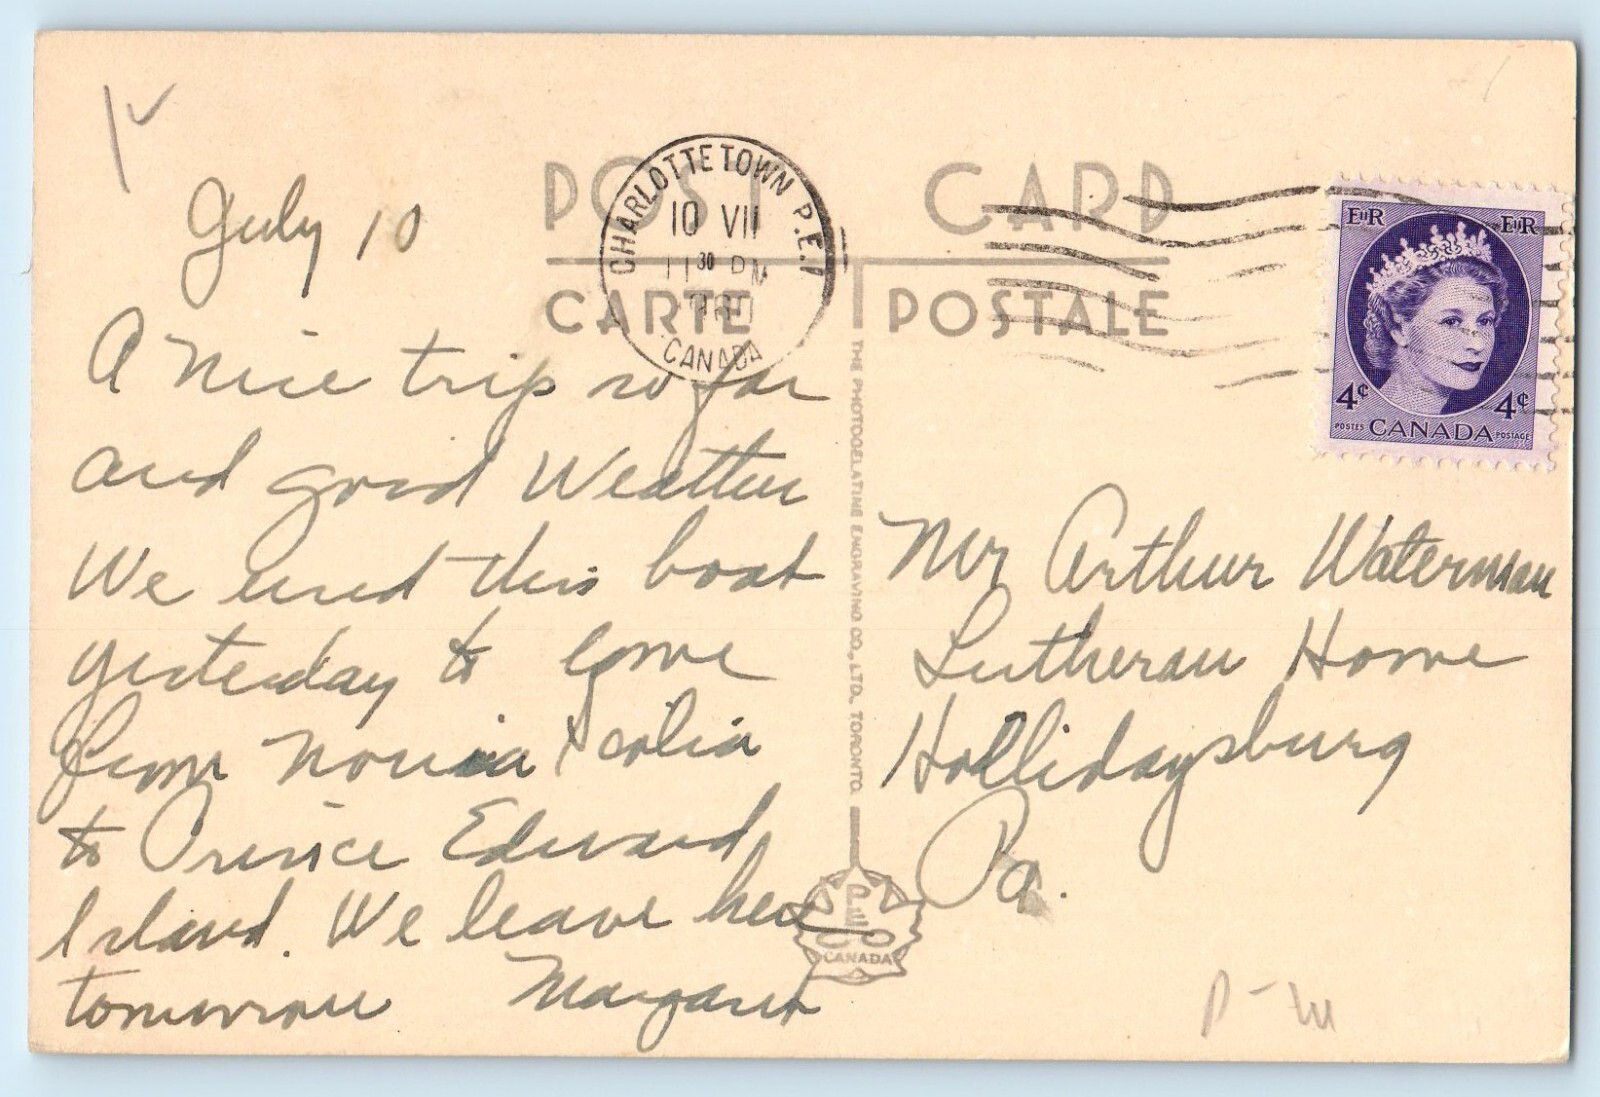 July 10
A Nice trip so far
and good Weather
We used this boat
yesterday to come
from Novia Scotia
to Prince Edward
Island. We leave here
tomorrow Margaret
POST CARD
CARTE POSTALE
CHARLOTTETOWN P.E.I
10 VII
11 30 PM
CANADA
THE PHOTOGELATINE ENGRAVING CO., LTD., TORONTO.
PECO
CANADA
EIIR EIIR
4¢ 4¢
POSTES CANADA POSTAGE
Mr Arthur Waterman
Lutheran Home
Hollidaysburg
Pa.